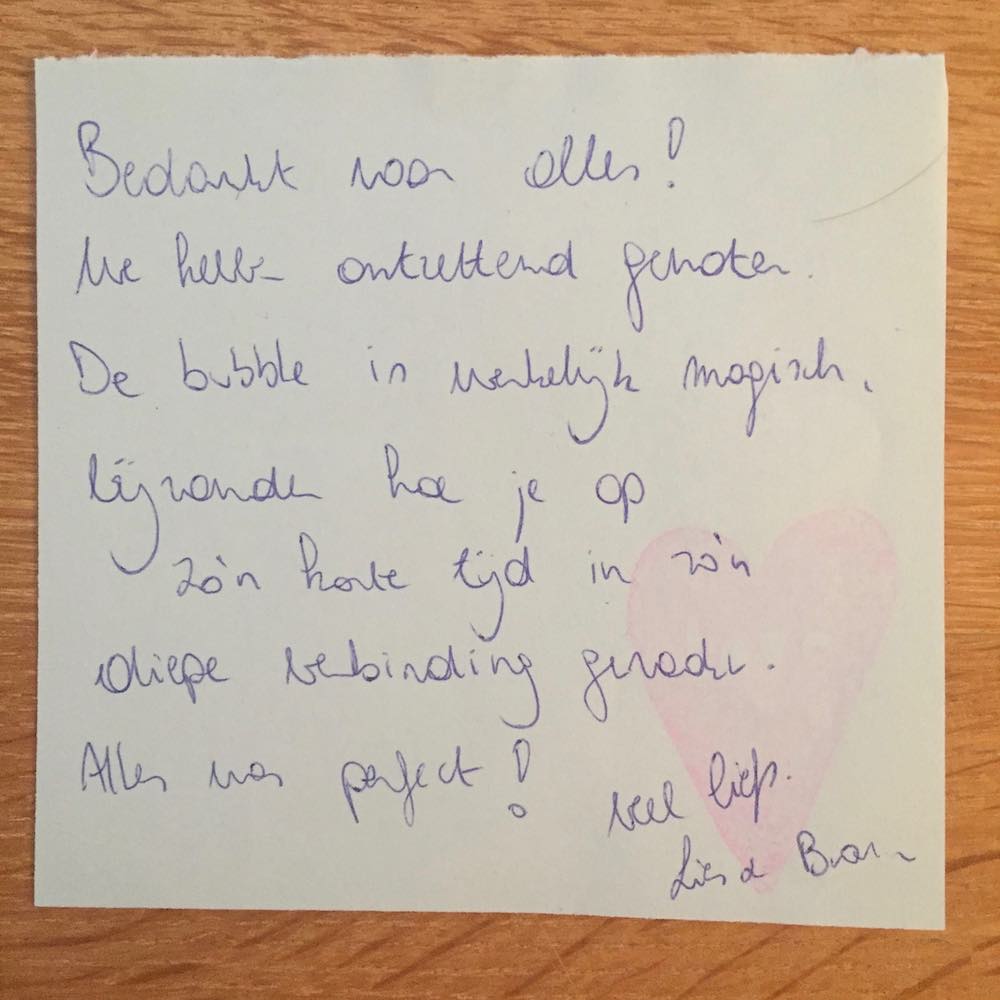 Bedankt voor alles!
We hebben ontzettend genoten.
De bubble is werkelijk magisch.
Bijzonder hoe je op
zo'n korte tijd in zo'n
diepe verbinding geraakt.
Alles was perfect!
Veel liefs.
Lies & Bram